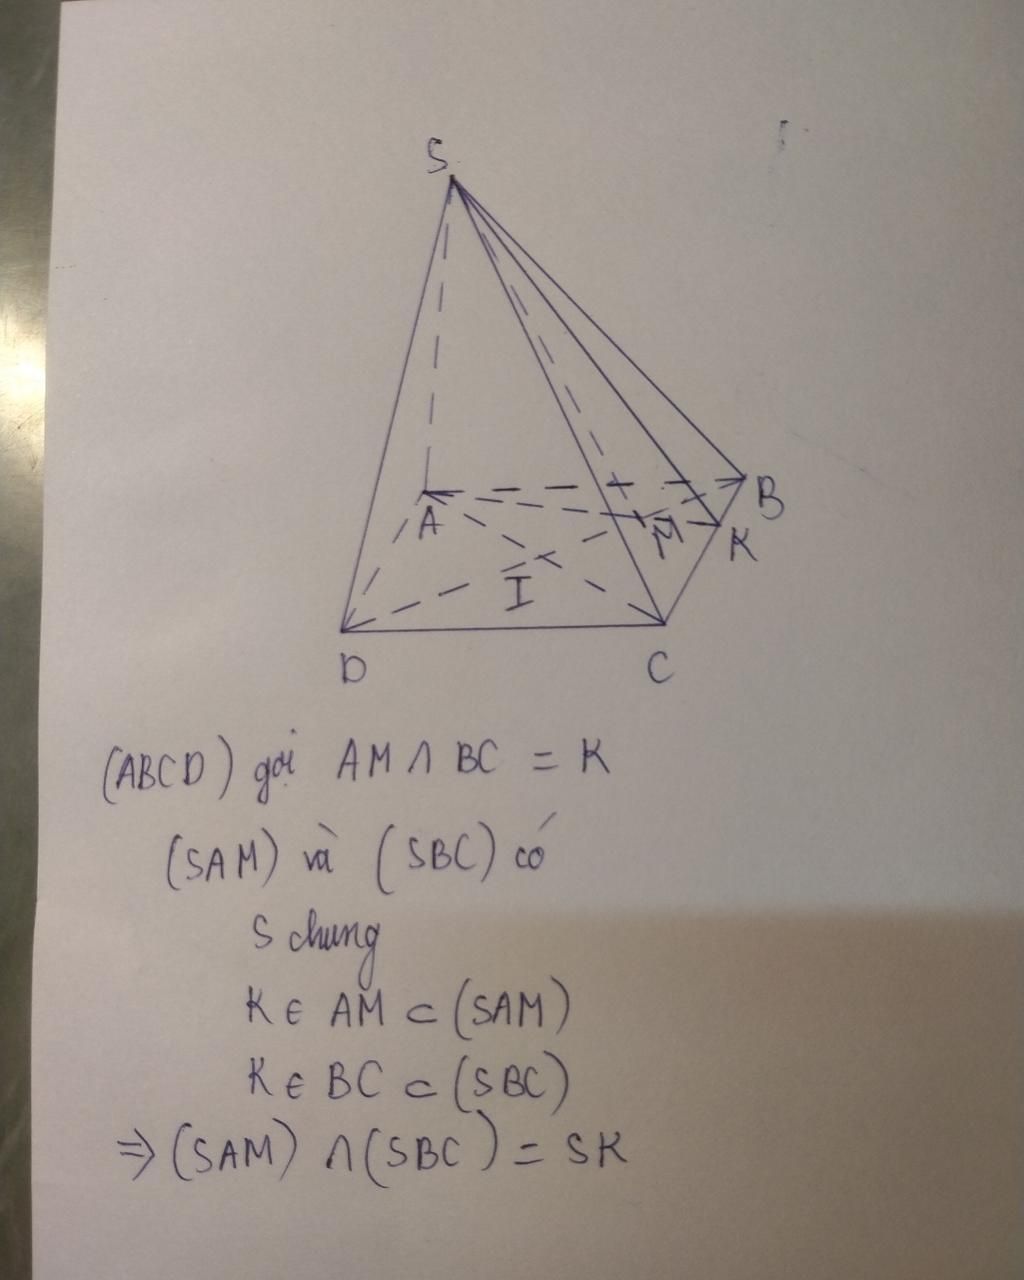 S
A
B
M
K
I
D
C
(ABCD) gọi AM ∩ BC = K
(SAM) và (SBC) có
S chung
K ∈ AM ⊂ (SAM)
K ∈ BC ⊂ (SBC)
⇒ (SAM) ∩ (SBC) = SK